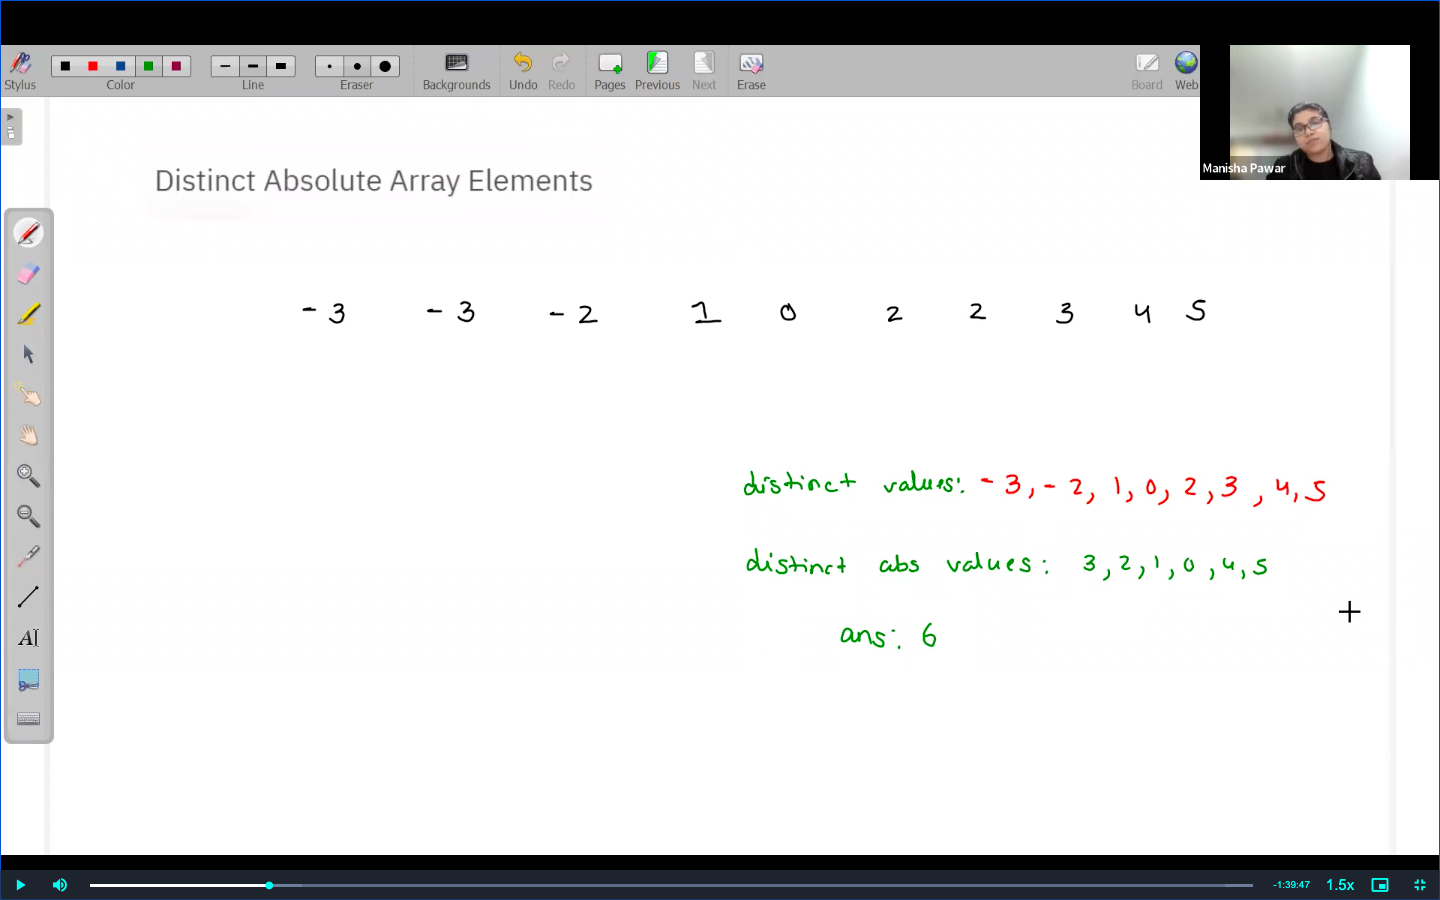 Stylus Color Line Eraser Backgrounds Undo Redo Pages Previous Next Erase Board Web
Manisha Pawar
Distinct Absolute Array Elements
-3 -3 -2 1 0 2 2 3 4 5
distinct values: -3, -2, 1, 0, 2, 3, 4, 5
distinct abs values: 3, 2, 1, 0, 4, 5
ans: 6
AI
-1:39:47 1.5x